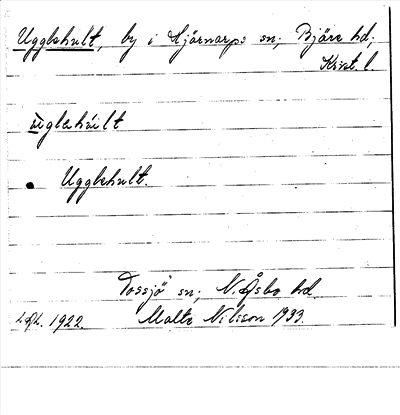 Ugglehult, by i Hjärnarps sn, Bjäre hd,
Krist. l
ùglehúlt
Ugglehult.
Tossjö sn, N. Åsbo hd.
1922. Malte Nilsson 1933.